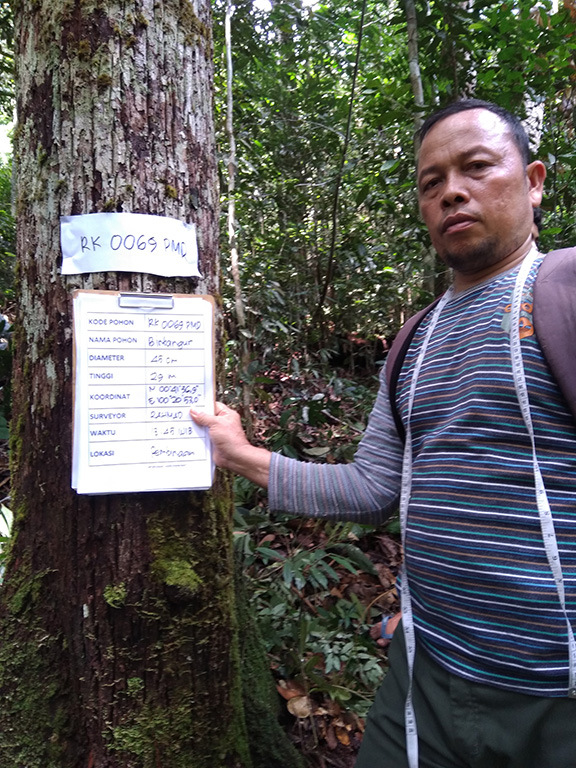 RK 0069 PMD
KODE POHON RK 0069 PMD
NAMA POHON Bintangur
DIAMETER 48 cm
TINGGI 29 m
KOORDINAT N 00°41'56,9"
E 100°20'57,0"
SURVEYOR RAHMAD
WAKTU
LOKASI